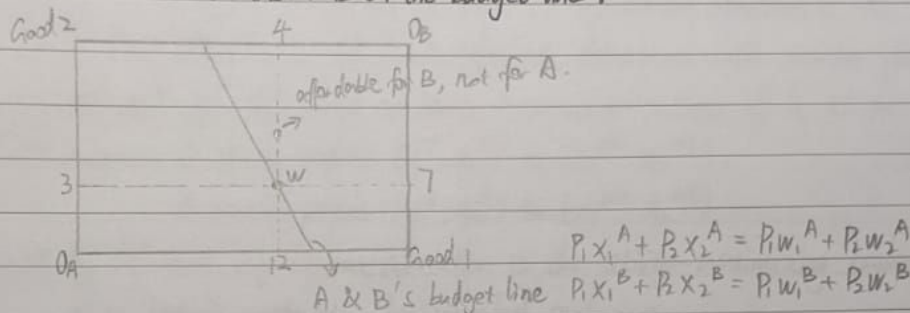 the budget line ?
Good 2 4 O_B
affordable for B, not for A.
3 w 7
O_A 12 Good 1 P₁x₁ᴬ + P₂x₂ᴬ = P₁w₁ᴬ + P₂w₂ᴬ
A & B's budget line P₁x₁ᴮ + P₂x₂ᴮ = P₁w₁ᴮ + P₂w₂ᴮ